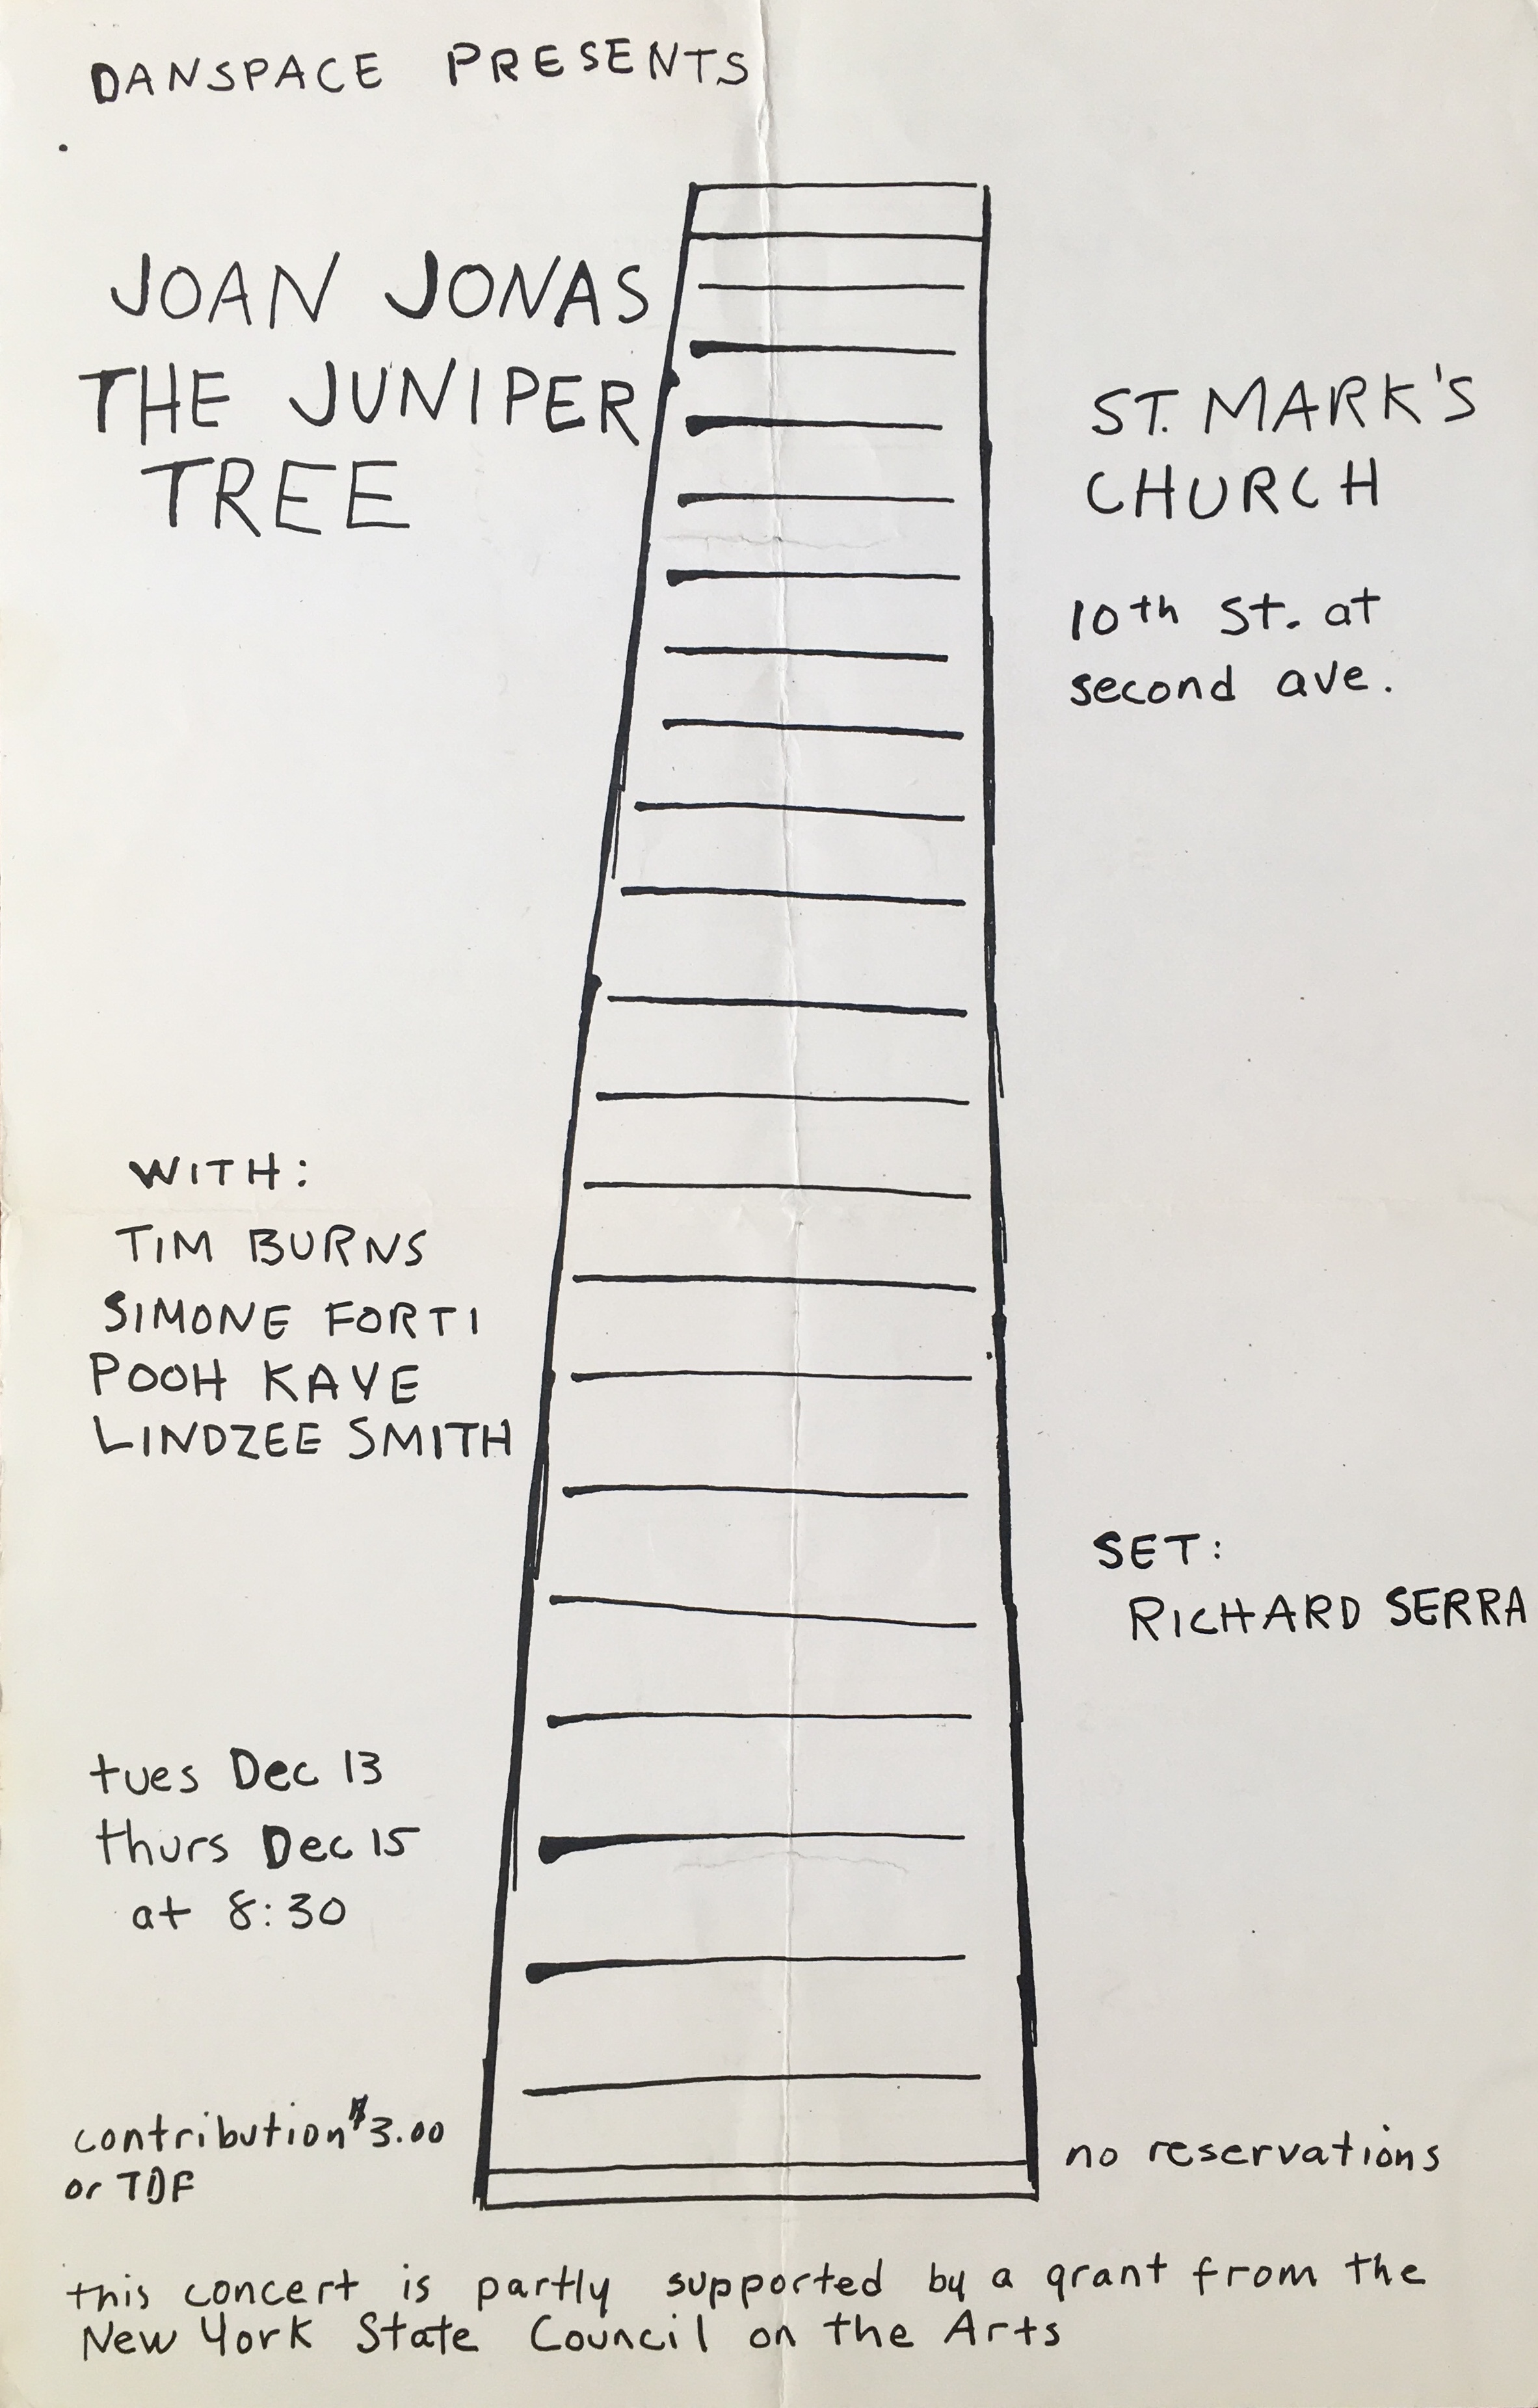 DANSPACE PRESENTS
JOAN JONAS
THE JUNIPER
TREE
ST. MARK'S
CHURCH
10th St. at
second ave.
WITH:
TIM BURNS
SIMONE FORTI
POOH KAYE
LINDZEE SMITH
SET:
RICHARD SERRA
tues Dec 13
thurs Dec 15
at 8:30
contribution $3.00
or TDF
no reservations
this concert is partly supported by a grant from the
New York State Council on the Arts